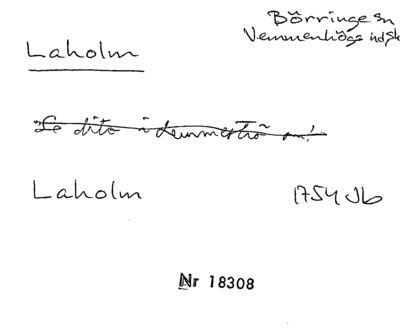 Börringe sn
Vemmenhögs hdsk
Laholm
Se dito i
Laholm 1754 Jb
Nr 18308